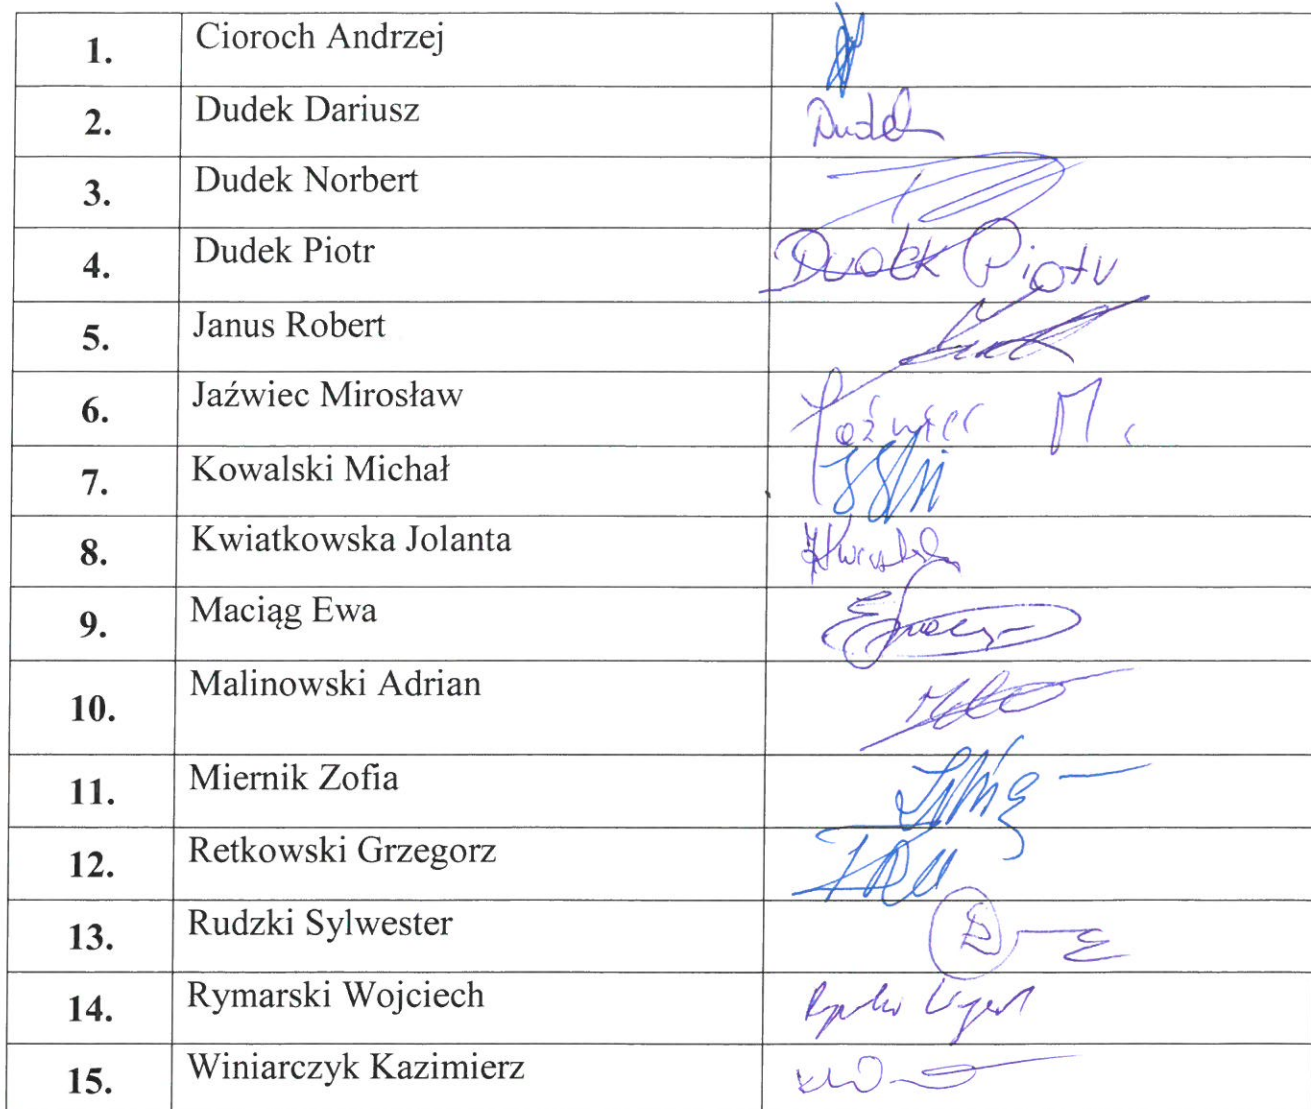 1. Cioroch Andrzej
2. Dudek Dariusz Dudek
3. Dudek Norbert
4. Dudek Piotr Dudek Piotr
5. Janus Robert
6. Jaźwiec Mirosław Jaźwiec M.
7. Kowalski Michał
8. Kwiatkowska Jolanta
9. Maciąg Ewa
10. Malinowski Adrian
11. Miernik Zofia
12. Retkowski Grzegorz
13. Rudzki Sylwester
14. Rymarski Wojciech
15. Winiarczyk Kazimierz